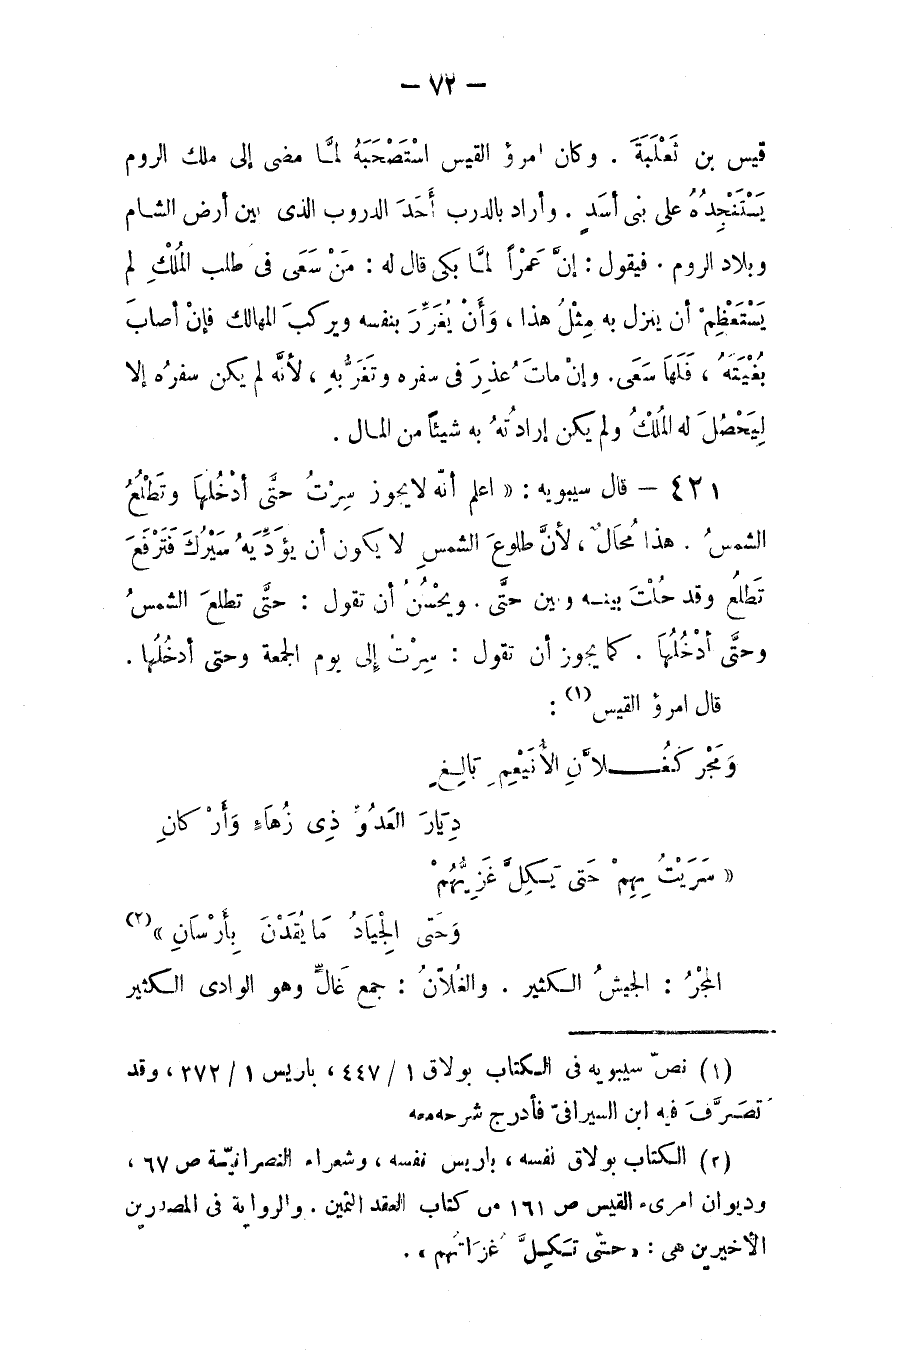 — ٧٢ —
قيس بن ثَعْلَبَةَ . وكان امرؤ القيس اسْتَصْحَبَهُ لمَّا مضى إلى ملك الروم
يَسْتَنْجِدُهُ على بنى أسَدٍ . وأراد بالدرب أَحَدَ الدروب الذى بين أرض الشام
وبلاد الروم . فيقول : إنَّ عَمْراً لمَّا بكى قال له : مَنْ سَعَى فى طلب المُلْكِ لم
يَسْتَعْظِمْ أن ينزل به مِثْلُ هذا ، وَأَنْ يُغَرِّرَ بنفسه ويركبَ المهالك فإنْ أصابَ
بُغْيَتَهُ ، فَلَها سَعَى . وإنْ ماتَ عُذِرَ فى سفره وتَغَرُّبِهِ ، لأنَّه لم يكن سفرُه إلا
لِيَحْصُلَ له المُلْكُ ولم يكن إرادتُهُ به شيئاً من المال .
٤٢١ — قال سيبويه : « اعلم أنّه لايجوز سِرْتُ حتَّى أدْخُلُها وتَطْلُعُ
الشمسُ . هذا مُحَالٌ ، لأنَّ طلوعَ الشمسِ لا يكون أن يؤدِّيَهُ سَيْرُكَ فَتَرْفَعَ
تَطْلُعُ وقد حُلْتَ بينه وبين حتَّى . ويحْسُنُ أن تقول : حتَّى تطلعَ الشمسُ
وحتَّى أدْخُلُهَا . كما يجوز أن تقول : سِرْتُ إلى يوم الجمعة وحتى أدخُلُها .
قال امرؤ القيس (١) :
وَمَجْرٍ كَغُــلاَّنِ الأُنَيْعِمِ بَالِغٍ
دِيَارَ العَدُوِّ ذِى زُهَاءٍ وَأَرْكانِ
« سَرَيْتُ بِهِمْ حَتى يَكِلَّ غَزِيُّهُمْ
وَحَتّى الجِيَادُ مَا يُقَدْنَ بِأَرْسَانِ » (٢)
المَجْرُ : الجيشُ الكثير . والغُلاّنُ : جمع غَالٍّ وهو الوادى الكثير
(١) نصّ سيبويه فى الكتاب بولاق ١ / ٤٤٧ ، باريس ١ / ٢٧٢ ، وقد
تصَرَّفَ فيه ابن السيرافىّ فأدرج شرحه معه
(٢) الكتاب بولاق نفسه ، باريس نفسه ، وشعراء النصرانيّة ص ٦٧ ،
وديوان امرىء القيس ص ١٦١ من كتاب العقد الثمين . والرواية فى المصدرين
الأخيرين هى : « حتّى تَكِلَّ غُزَاتُهم » .